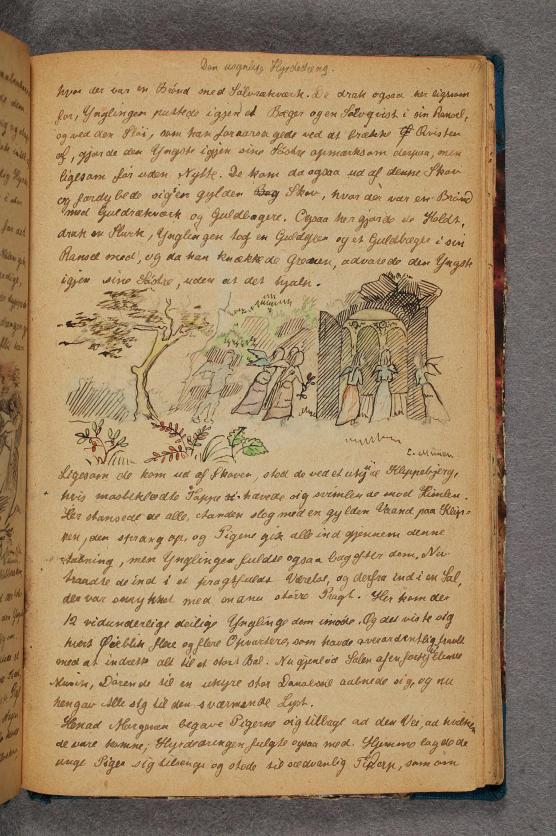 Den usynlige Hyrdedreng.
hvor der var en Brönd med Sölvrækværk. De drak ogsaa her ligesom
för, Ynglingen puttede igjen et Bæger og en Sölvqvist i sin Ransel,
og ved den Stöi, som han foraarsagede ved at brække Qvisten
af, gjorde den Yngste igjen sine Söstre opmærksom derpaa, men
ligesom för uden Nytte. De kom da ogsaa ud af denne Skov
og fordybede sig i en gylden Skov, hvor der var en Brönd
med Guldrækværk og Guldbægere. Ogsaa her gjorde de Holdt,
drak en Slurk, Ynglingen tog en og et Guldbæger i sin
Ransel med, og da han knækkede Grenen, advarede den Yngste
igjen sine Söstre, uden at det hjalp.
Ligesom de kom ud af Skoven, stod de ved et uhyre Klippebjerg,
hvis mosbeklædte Toppe hævede sig svimlende mod Himlen.
Her standsede de alle, slog med en gylden Vaand paa Klip-
pen, den sprang op, og Pigene gik alle ind gjennem denne
Aabning, men Ynglingen fulgte ogsaa bagefter dem. Nu
traadte de ind i et pragtfuldt Værelse, og derfra ind i en Sal,
der var smykket med endnu större Pragt. Her kom der
12 vidunderlige deilige Ynglinge dem imöde. Og der viste sig
hvert Öieblik flere og flere Opvartere, som havde overordentlig travlt
med at indrette alt til et stort Bal. Nu gjenlöd Salen af en fortryllende
Musik, Dörene til en uhyre stor Dansesal aabnede sig, og nu
hengav Alle sig til den sværmende Lyst.
Henad Morgenen begave Pigerne sig tilbage ad den Vei, ad hvilken
de vare komne; Hyrdedrengen fulgte ogsaa med. Hjemme lagde de
unge Piger sig tilsengs og stode til sædvanlig Tid op, som om